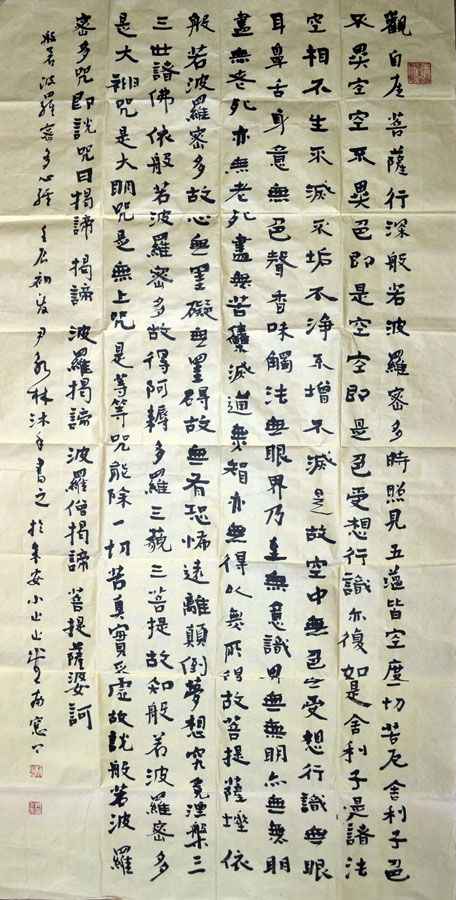 觀自在菩薩行深般若波羅密多時照見五蘊皆空度一切苦厄舍利子色
不異空空不異色即是空空即是色受想行識亦復如是舍利子是諸法
空相不生不滅不垢不淨不增不滅是故空中無色無受想行識無眼
耳鼻舌身意無色聲香味觸法無眼界乃至無意識界無無明亦無無明
盡無老死亦無老死盡無苦集滅道無智亦無得以無所得故菩提薩埵依
般若波羅密多故心無罣礙無罣碍故無有恐怖遠離顛倒夢想究竟涅槃三
三世諸佛依般若波羅密多故得阿耨多羅三藐三菩提故知般若波羅密多
是大神咒是大明咒是無上咒是等等咒能除一切苦真實不虛故説般若波羅
密多咒即説咒曰揭諦揭諦波羅揭諦波羅僧揭諦菩提薩婆訶
般若波羅密多心經 壬辰初夏尹永林沐手書之於